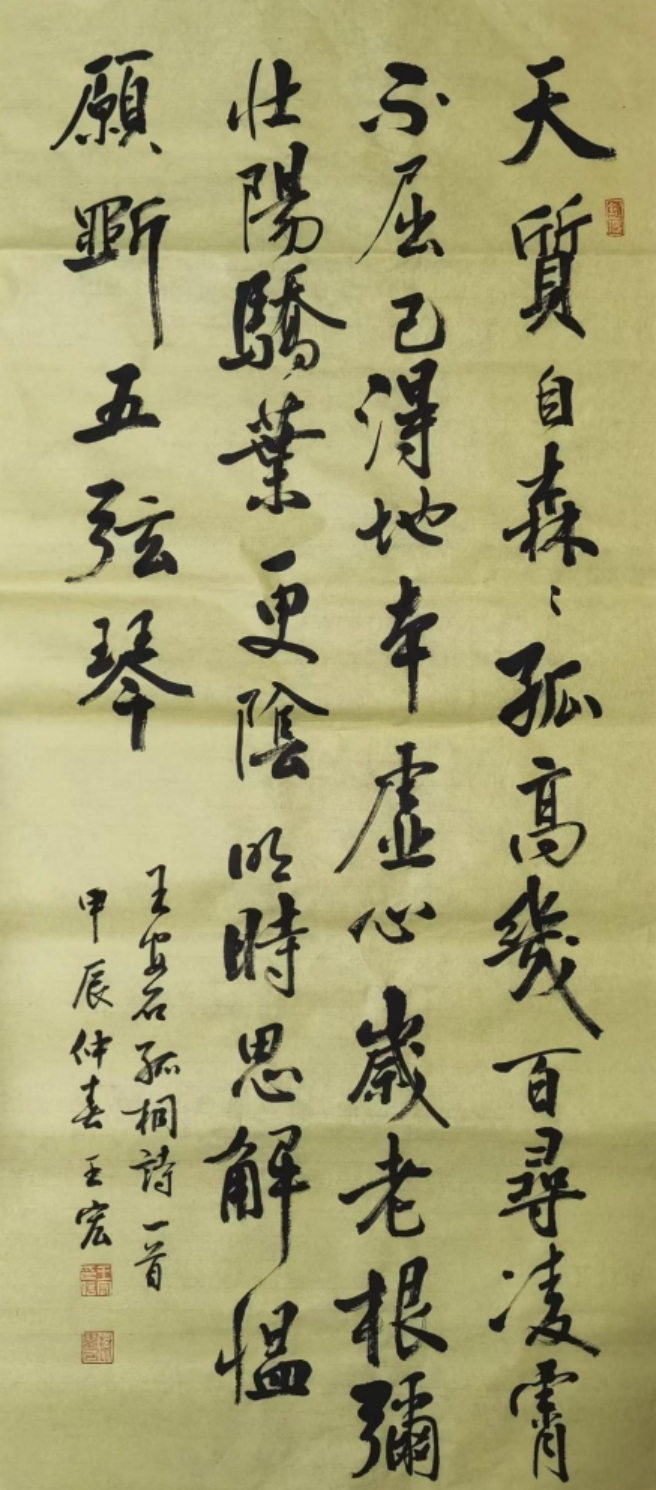 天質自森〻孤高幾百尋凌霄
不屈己得地本虛心歲老根彌
壯陽驕葉更陰明時思解慍
願斲五弦琴
王安石孤桐詩一首
甲辰仲春王宏